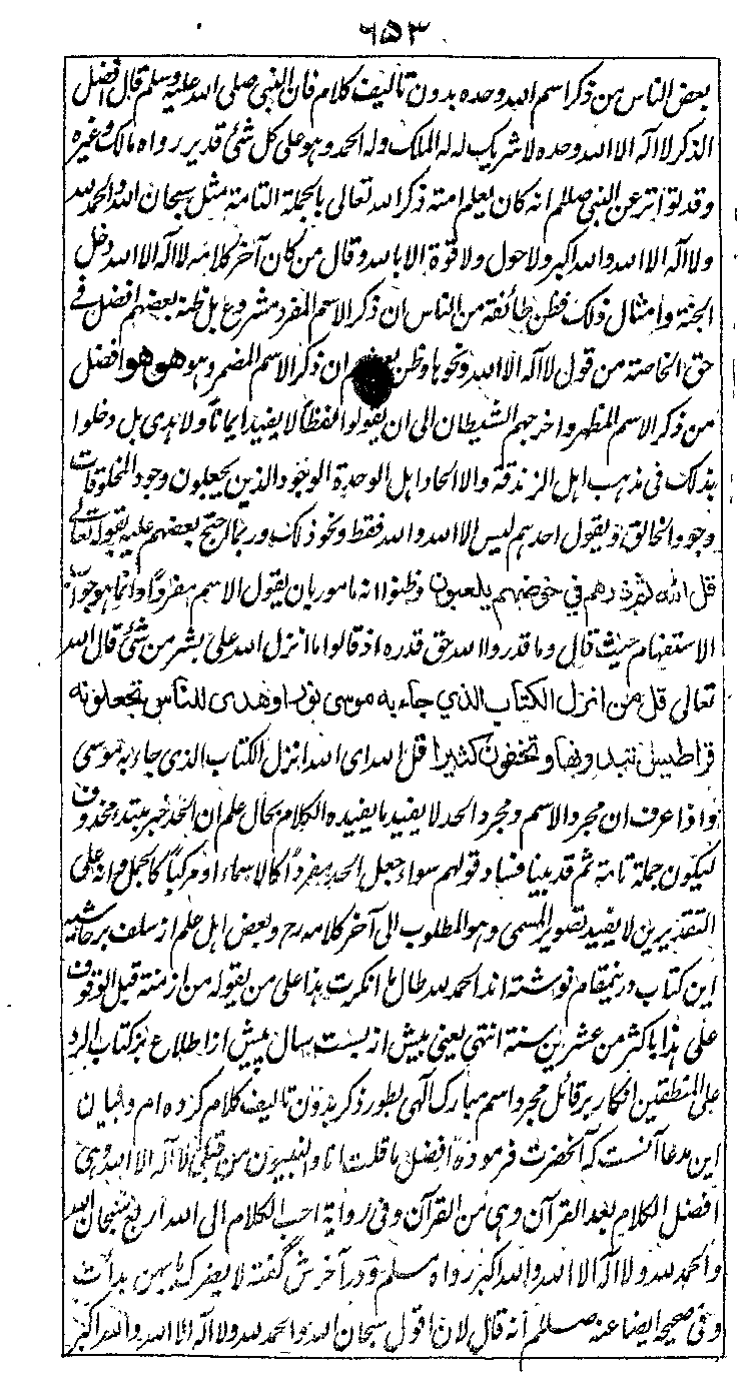 ٦٥٣
بعض الناس من ذكر اسم الله وحده بدون تاليف كلام فان النبي صلى الله عليه وسلم قال افضل
الذكر لا اله الا الله وحده لا شريك له له الملك وله الحمد وهو على كل شئ قدير رواه مالك وغيره
وقد تواتر عن النبي صللم انه كان يعلم امته ذكر الله تعالى بالجملة التامة مثل سبحان الله والحمد لله
ولا اله الا الله والله اكبر ولا حول ولا قوة الا بالله وقال من كان آخر كلامه لا اله الا الله دخل
الجنة وامثال ذلك فظن طائفة من الناس ان ذكر الاسم المفرد مشروع بل ظنه بعضهم افضل في
حق الخاصة من قول لا اله الا الله ونحوها وظن بعضهم ان ذكر الاسم المضمر وهو هو هو افضل
من ذكر الاسم المظهر واخرجهم الشيطان الى ان يقولوا لفظاً لا يفيد ايماناً ولا هدى بل دخلوا
بذلك في مذهب اهل الزندقة والالحاد اهل الوحدة الوجود الذين يجعلون وجود المخلوقات
وجود الخالق ويقول احدهم ليس الا الله والله فقط ونحو ذلك وربما احتج بعضهم عليه بقوله تعالى
قل الله ثم ذرهم في خوضهم يلعبون وظنوا انه مامور بان يقول الاسم مفرداً وانما هو جواب
الاستفهام حيث قال وما قدروا الله حق قدره اذ قالوا ما انزل الله على بشر من شئ قال الله
تعالى قل من انزل الكتاب الذي جاء به موسى نورا وهدى للناس تجعلونه
قراطيس تبدونها وتخفون كثيرا قل الله اى الله انزل الكتاب الذي جاء به موسى
واذا عرف ان مجرد الاسم ومجرد الحد لا يفيد ما يفيده الكلام بحال علم ان الحد خبر مبتدء محذوف
ليكون جملة تامة ثم قد بينا فساد قولهم سواء جعل الحد مفرداً كالاسماء او مركباً كالجمل وانه على
التقديرين لا يفيد تصوير المسمى وهو المطلوب الى آخر كلامه رح وبعض اهل علم از سلف بر حاشيه
اين كتاب درينمقام نوشته اند الحمد لله طال ما انكرت هذا على من يقوله من ازمنة قبل الوقوف
على هذا باكثر من عشرين سنة انتهى يعنى بيش از بست سال پيش از اطلاع بر كتاب الرد
على المنطقيين انكار بر قائل مجرد اسم مبارك الهى بطور ذكر بدون تاليف كلام كرده ام و بيان
اين مدعا آنست كه آنحضرت فرموده افضل ما قلت انا والنبيون من قبلي لا اله الا الله وهى
افضل الكلام بعد القرآن وهى من القرآن وفى رواية احب الكلام الى الله اربع سبحان الله
والحمد لله ولا اله الا الله والله اكبر رواه مسلم ودر آخرش گفته لا يضرك بايهن بدأت
وفى صحيحه ايضا عنه صللم انه قال لان اقول سبحان الله والحمد لله ولا اله الا الله والله اكبر